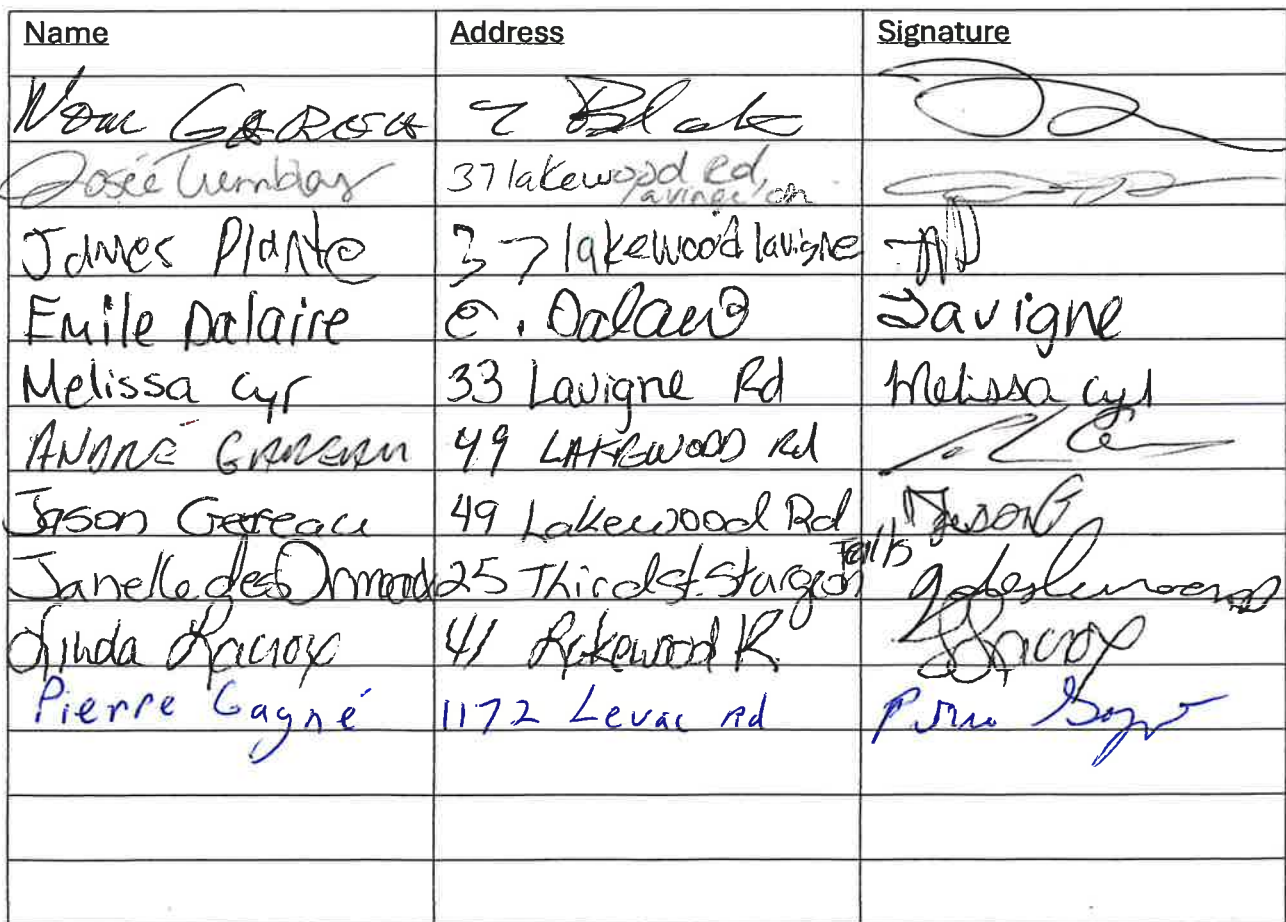 Name Address Signature
Josée Tremblay 37 lakewood Rd,
James Plante 37 lakewood lavigne
Emile Dalaire e. Dalaire Lavigne
Melissa Cyr 33 Lavigne Rd Melissa Cyr
ANDRÉ GAREAU 49 LAKEWOOD Rd
Jason Gereau 49 Lakewood Rd Jason G
Janelle des Ormeaux 25 Third St. Sturgeon Falls
Linda Lacroix 41 Lakewood R LLacroix
Pierre Gagné 1172 Levac Rd